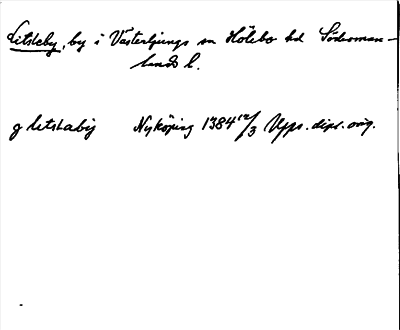 Litsleby, by i Västerljungs sn Hölebo hd Söderman-
lands l.
g letstabij Nyköping 1384 12/3 Upps. dipl. orig.